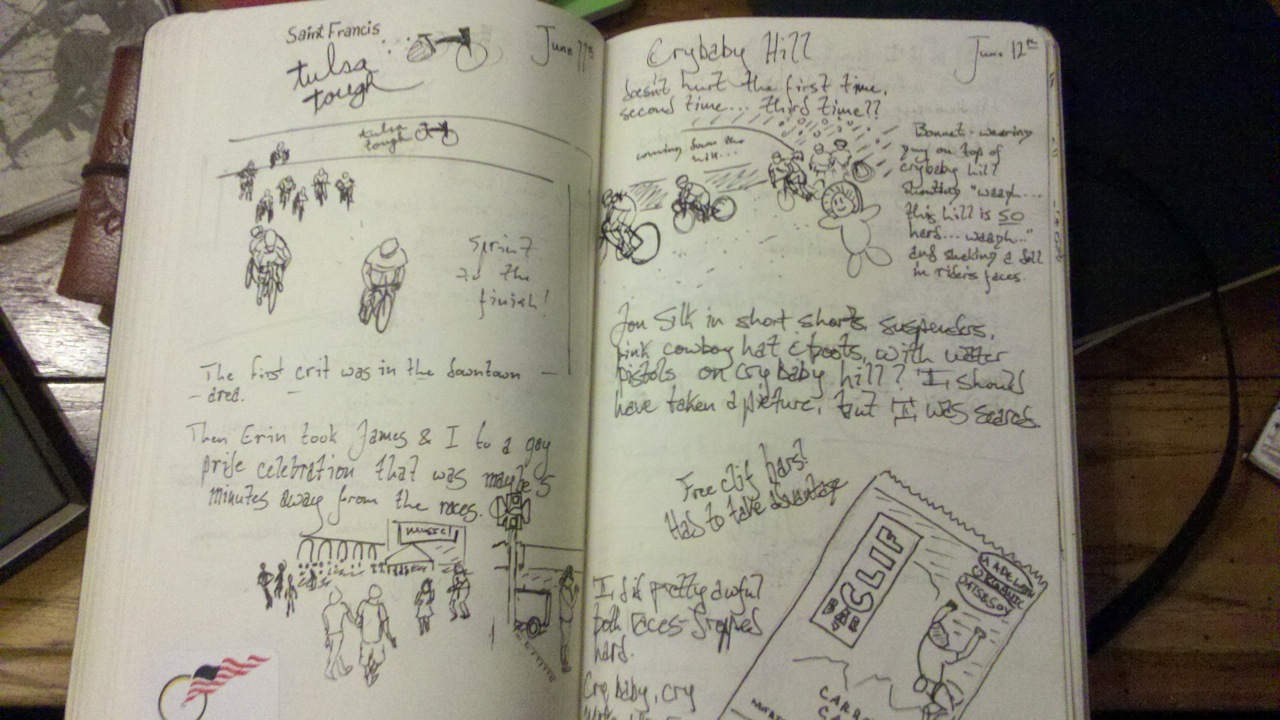 Saint Francis
tulsa
tough
June 11th
tulsa
tough
Sprint
to the
finish!
The first crit was in the downtown
area.
Then Erin took James & I to a gay
pride celebration that was maybe 5
minutes away from the races.
music!
Crybaby Hill
June 12th
doesn't hurt the first time,
second time... third time??
coming down the
hill...
Bonnet-wearing
guy on top of
crybaby hill
shouting "waaah...
this hill is SO
hard... waaah..."
and shaking a doll
in riders faces.
Jon Silk in short shorts, suspenders,
pink cowboy hat & boots, with water
pistols on cry baby hill? I should
have taken a picture, but I was scared.
Free clif bars!
Had to take advantage
CLIF
BAR
MADE WITH
ORGANIC
OATS & SOY
CARR
CA
I did pretty awful
both races - dropped
hard.
Cry, baby, cry